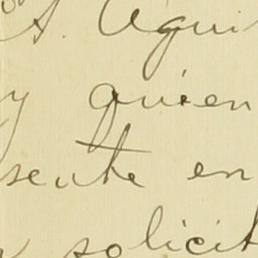 A. Agui
y quien
sente en
solicit